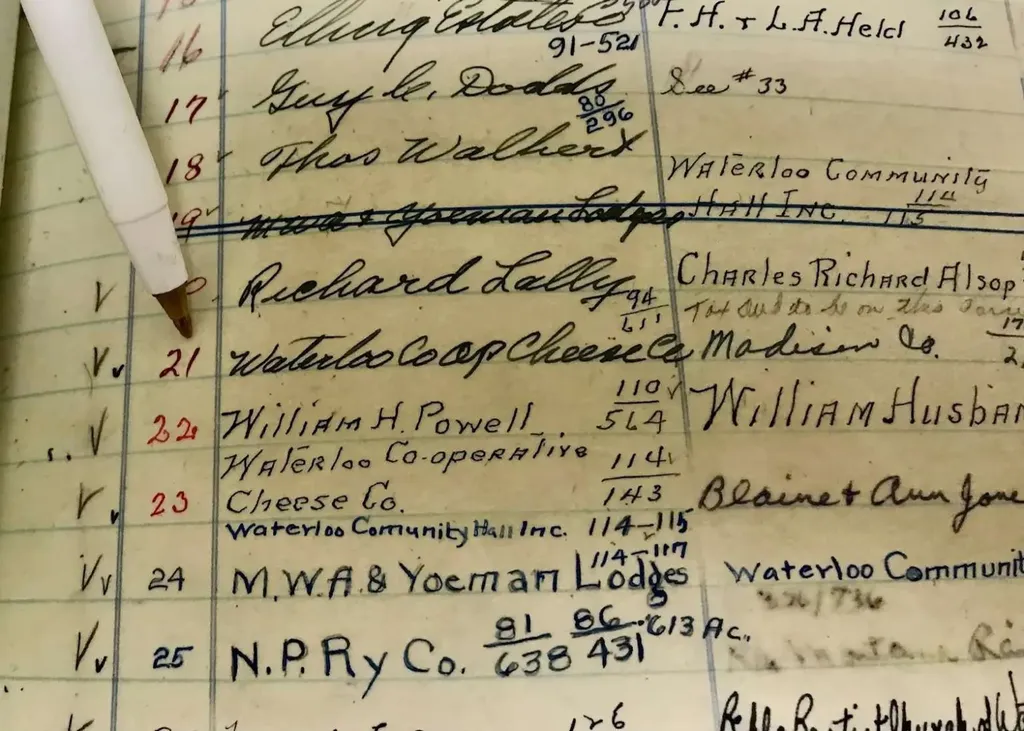 16 Elling Estate Co F. H. & L. A. Held 106/432
91-521
17 Guy C. Dodds 80/296 See #33
18 Thos Walbert
Waterloo Community
19 M.W.A & Yoeman Lodges Hall Inc. 114/115
Richard Lally 94/611 Charles Richard Alsop
21 Waterloo Coop Cheese Co Madison Co. 17
22 William H. Powell 110/564 William Husban
Waterloo Co-operative
23 Cheese Co. 114/143 Blaine & Ann Jone
Waterloo Comunity Hall Inc. 114-115
114-117
24 M.W.A & Yoeman Lodges Waterloo Communit
326/736
25 N.P. Ry Co. 81/638 86/431 .613 Ac.
126